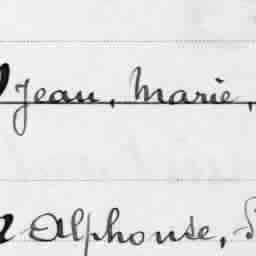 Jean, Marie,
Alphonse,